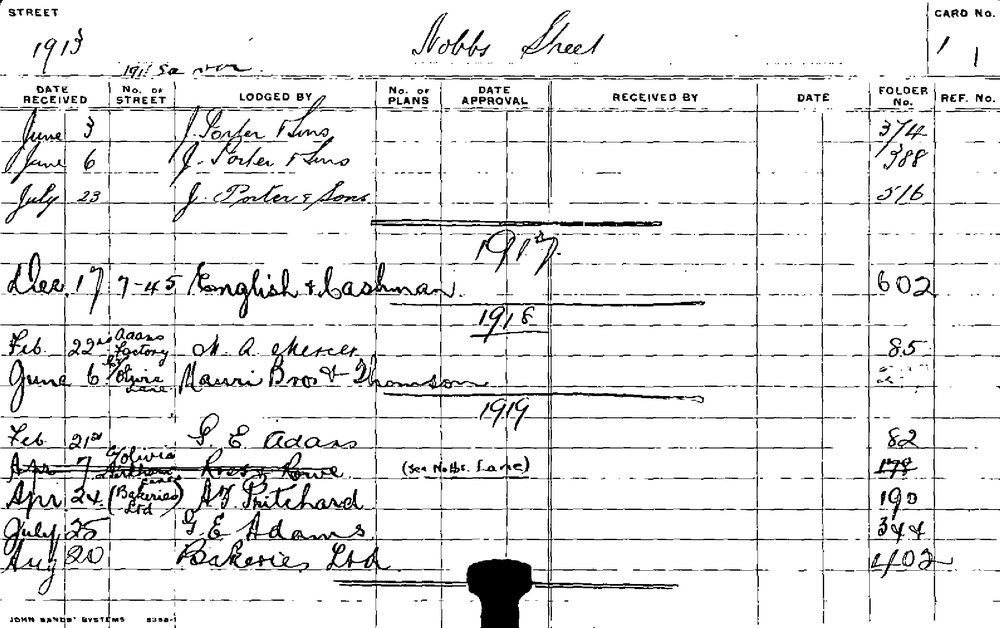 STREET
Nobbs Street
CARD No.
1 1
1913
DATE RECEIVED No. OF STREET LODGED BY No. OF PLANS DATE APPROVAL RECEIVED BY DATE FOLDER No. REF. No.
June 3 J. Porter & Sons 374
June 6 J. Porter & Sons 388
July 23 J. Porter & Sons 516
1917
Dec. 17 7-45 English & Cashman. 602
1918
Feb. 22nd Adams Factory M. A. Mercer 85
June 6 Olivia Lane Mauri Bros & Thomson
1919
Feb. 21st G. E. Adams 82
Apr 7 Olivia Lane Ross & Rowe (See Nobbs. Lane) 178
Apr 24 (Bakeries Ltd) A. F. Pritchard 190
July 25 G. E. Adams 344
Aug 20 Bakeries Ltd 402
JOHN SANDS' SYSTEMS